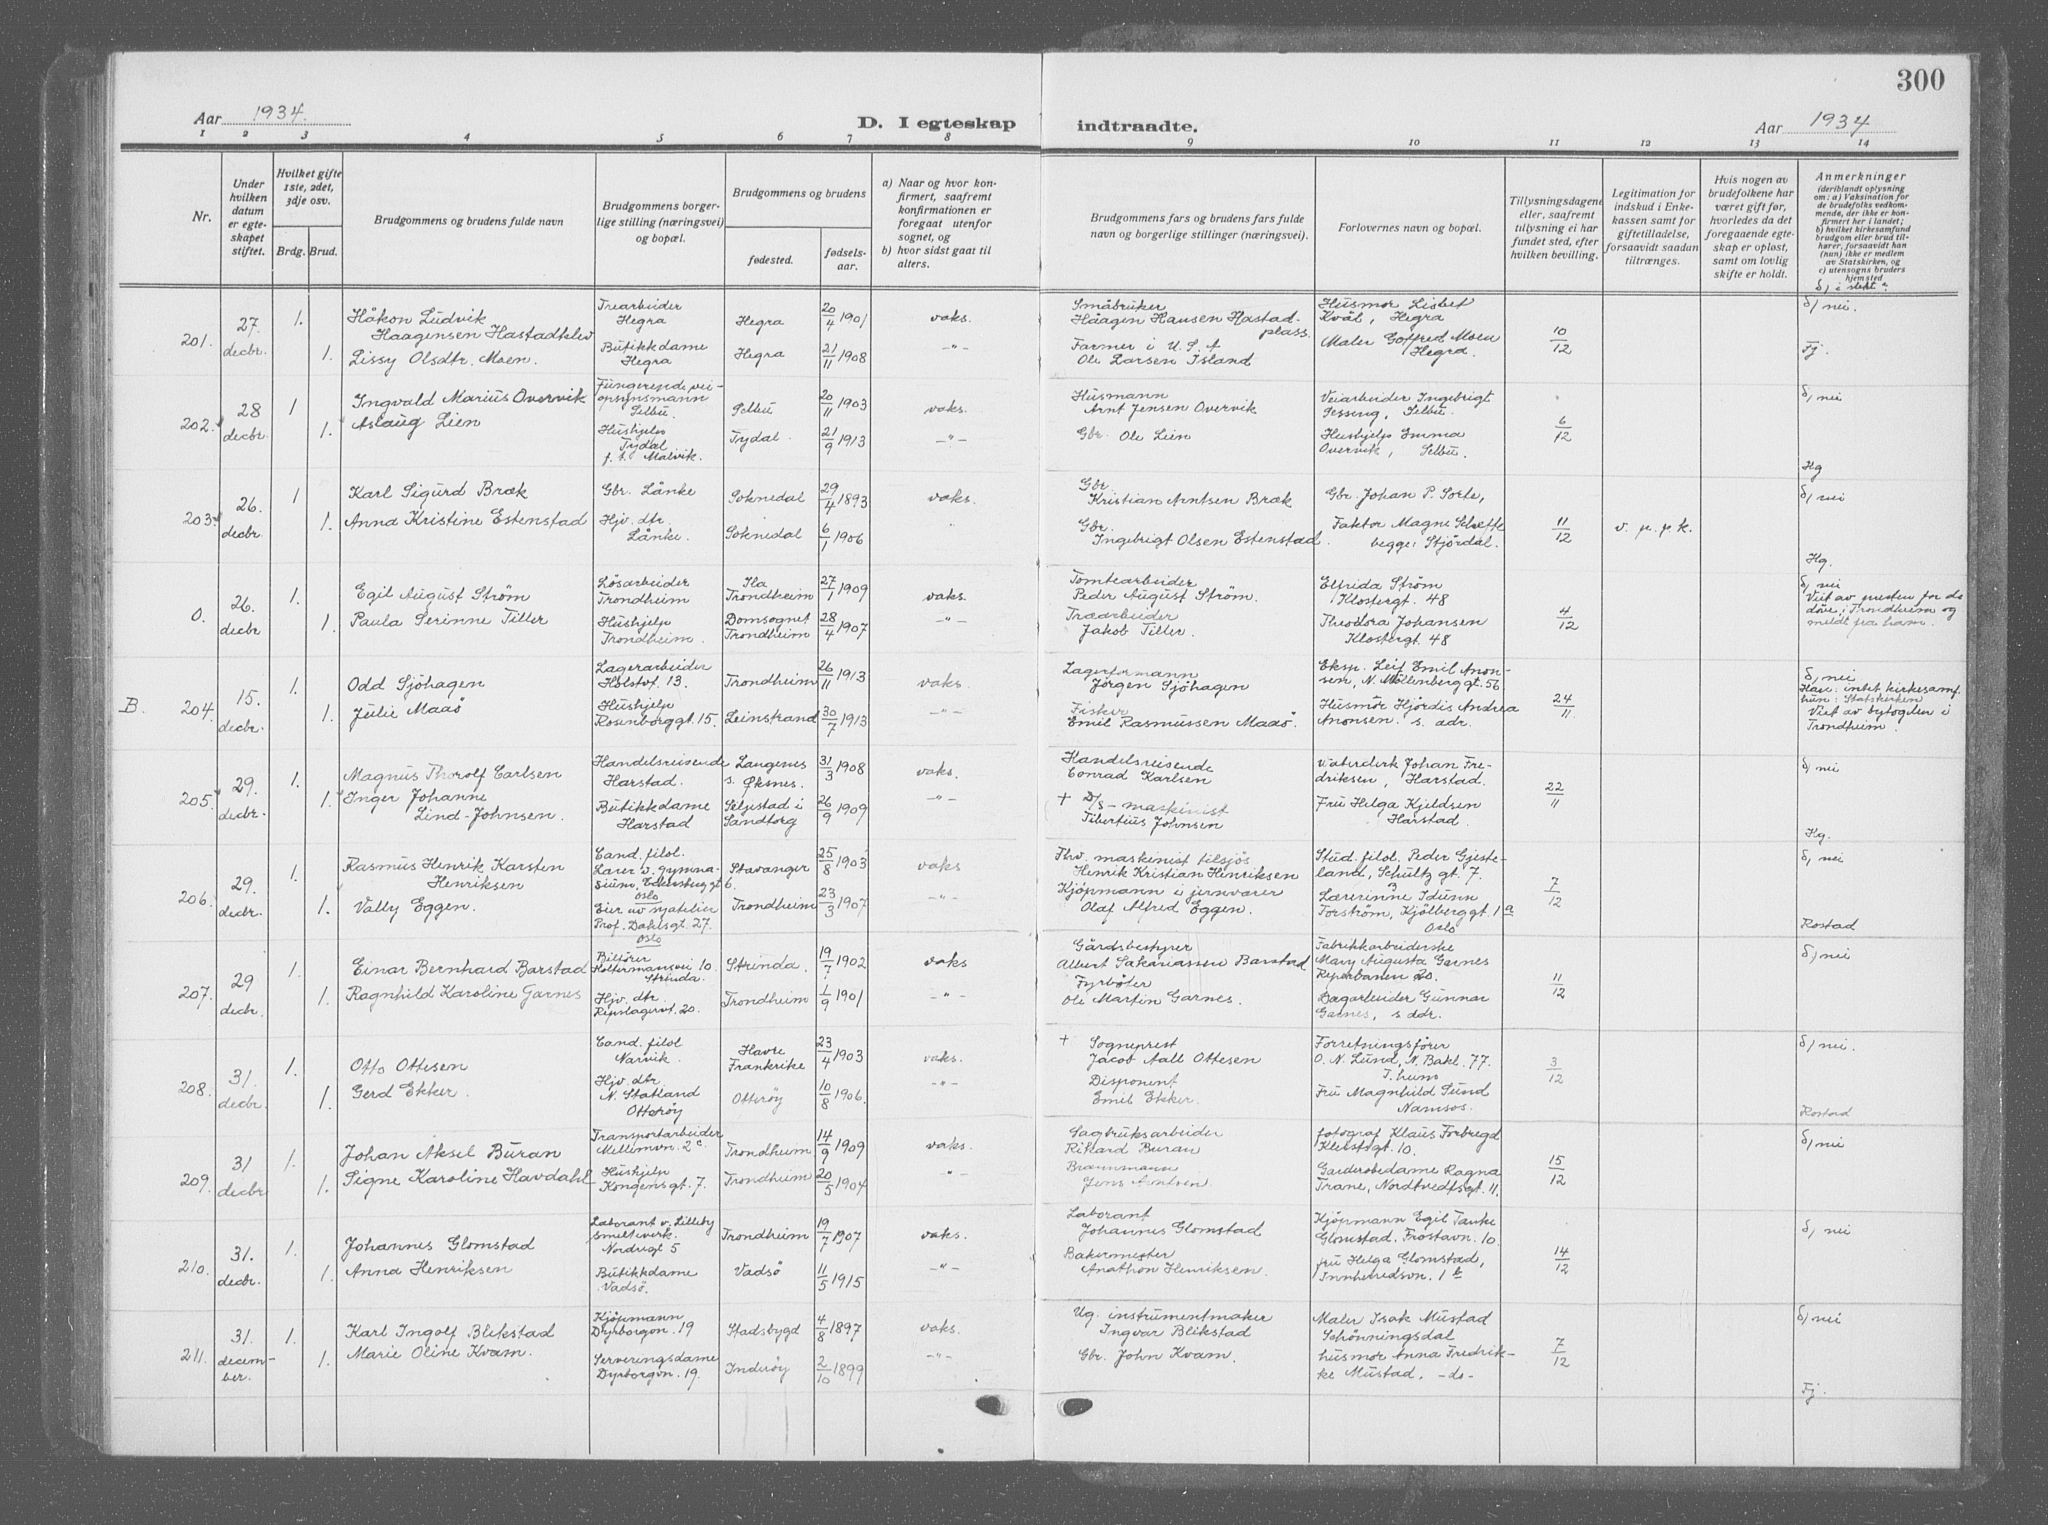 300
Aar 1934.
D. I egteskap indtraadte.
Aar 1934
1 2 3 4 5 6 7 8 9 10 11 12 13 14
Nr.
Under hvilken datum er egteskapet stiftet.
Hvilket gifte 1ste, 2det, 3dje osv.
Brdg. Brud.
Brudgommens og brudens fulde navn
Brudgommens borgerlige stilling (næringsvei) og bopæl.
Brudgommens og brudens
fødested.
fødselsaar.
a) Naar og hvor konfirmert, saafremt konfirmationen er foregaat utenfor sognet, og
b) hvor sidst gaat til alters.
Brudgommens fars og brudens fars fulde navn og borgerlige stillinger (næringsvei).
Forlovernes navn og bopæl.
Tillysningsdagene eller, saafremt tillysning ei har fundet sted, efter hvilken bevilling.
Legitimation for indskud i Enkekassen samt for giftetilladelse, forsaavidt saadan tiltrænges.
Hvis nogen av brudefolkene har været gift før, hvorledes da det foregaaende egteskap er opløst, samt om lovlig skifte er holdt.
Anmerkninger
(deriblandt oplysning om: a) Vaksination for de brudefolks vedkommende, der ikke er konfirmert her i landet; b) hvilket kirkesamfund brudgom eller brud tilhører, forsaavidt han (hun) ikke er medlem av Statskirken, og c) utensogns bruders hjemsted
d) i slekt?
201. 27. decbr. 1. Håkon Ludvik Haagensen Hastadklev Trearbeider Hegra Hegra 20/4 1901 vaks. Småbruker Håagen Hansen Hastadplass. Husmor Lisbet Kvål, Hegra 10/12 d, nei.
1. Lissy Olsdtr. Moen. Butikkdame Hegra Hegra 21/11 1908 -"- Farmer i U.S.A Ole Larsen Island Maler Gotfred Moen Hegra. Fj.
202. 28 decbr. 1 Ingvald Marius Overvik Fungerende veiopsynsmann Selbu. Selbu 20/11 1903 vaks. Husmann Arnt Jensen Overvik Veiarbeider Ingebrigt Sessing, Selbu. 6/12 d, nei
1. Aslaug Lien Hushjelp Tydal f. t. Malvik. Tydal. 21/9 1913 -"- Gbr. Ole Lien Hushjelp Emma Overvik, Selbu. Hg
203. 26. decbr. 1 Karl Sigurd Bræk Gbr. Lånke Soknedal 29/4 1893 vaks. Gbr. Kristian Arntsen Bræk Gbr. Johan P. Sorte, 11/12 v. p. p. k. d, nei
1. Anna Kristine Estenstad Hjv. dtr. Lånke. Soknedal 6/1 1906 " Gbr. Ingebrigt Olsen Estenstad. Faktor Magne begge: Stjördal. Hg.
O. 26. decbr 1. Egil August Ström Lösarbeider Trondheim Ila Trondheim 27/1 1909 vaks. Tomtearbeider Peder August Ström. Elfrida Ström Klostergt. 48 4/12 d, nei Viet av presten for de döve i Trondheim og meldt fra ham.
1 Paula Serinne Tiller Hushjelp Trondheim. Domsognet Trondheim 28/4 1907 -"- Træarbeider Jakob Tiller. Theodora Johansen Klostergt. 48
B. 204. 15. decbr. 1. Odd Sjöhagen Lagerarbeider Holstvt. 13. Trondheim 26/11 1913 vaks. Lagerformann Jörgen Sjöhagen Eksp. Leif Emil Anonsen, N. Möllenberggt. 56 24/11 d, nei Han: intet kirkesamf. hun: Statskirken Viet av byfogden i Trondheim
1. Julie Maaö Hushjelp Rosenborggt. 15. Leinstrand 30/7 1913 -"- Fisker Emil Rasmussen Maaö. Husmor Hjördis Andrea Anonsen. s. adr.
205. 29. decbr. 1. Magnus Thorolf Carlsen Handelsreisende Harstad. Langenes s. Øksnes. 31/3 1908 vaks. Handelsreisende Conrad Karlsen Waterclerk Johan Fredriksen, Harstad. 22/11 d, nei
1. Inger Johanne Lind-Johnsen. Butikkdame Harstad Seljestad i Sandtorg 26/9 1909 -"- + D/S-maskinist Tibertius Johnsen Fru Helga Kjeldsen Harstad. Hg.
206. 29. decbr. 1. Rasmus Henrik Karsten Henriksen Cand. filol. Lærer v. gymnasium, Eckersberggt 6. Oslo Stavanger 25/8 1903 vaks Fhv. maskinist tilsjös Henrik Kristian Henriksen Stud. filol. Peder Gjesteland, Schultz gt. 7. 7/12 d, nei
1. Valby Eggen. Eier av syatelier Prof. Dahlsgt. 27. Oslo Trondheim 23/3 1907 -"- Kjöpmann i jernvarer Olaf Alfred Eggen. Lærerinne Idunn Torström, Kjölberggt. 1a Oslo Rostad
207. 29 decbr. 1. Einar Bernhard Barstad Bilförer Koltermansvei 10. Strinda. Strinda. 19/7 1902 vaks Gårdsbestyrer Albert Sakariassen Barstad Fabrikkarbeiderske Mary Augusta Garnes Reperbanen 20. 11/12 d, nei
1. Ragnhild Karoline Garnes Hjv. dtr. Repslagervt. 20. Trondheim 1/9 1901 -"- Fyrböter Ole Martin Garnes. Dagarbeider Gunnar Garnes, s. adr.
208. 31. decbr. 1. Otto Ottesen Cand. filol Narvik. Havre Frankrike 23/4 1903 vaks. + Sogneprest Jacob Aall Ottesen Forretningsförer O. N. Lund, N. Bakl. 77. T.heim 3/12 d, nei.
1. Gerd Ekker. Hjv. dtr. N. Statland Otteröy Otteröy 10/8 1906. -"- Disponent Emil Ekker. Fru Magnhild Sund Namsos. Rostad
209. 31 decbr 1. Johan Aksel Buran Transportarbeider Mellemvn. 2c Trondheim 14/9 1909 vaks. Sagbruksarbeider Rikard Buran fotograf Klaus Forbregd Kleistsgt. 10. 15/12 d, nei
1. Signe Karoline Havdahl Hushjelp Kongensgt. 7. Trondheim 20/5 1904 -"- Brannmann Jens Arntsen. Garderobedame Ragna Trane, Nordtvedtsgt. 11.
210. 31. decbr. 1. Johannes Glomstad Laborant v. Lilleby smelteverk. Nordregt 5 Trondheim 19/7 1907 vaks. Laborant Johannes Glomstad Kjöpmann Egil Tanke Glomstad, Frostavn. 10. 14/12 d, nei
1 Anna Henriksen Butikkdame Vadsö. Vadsö 11/5 1915 -"- Bakermester Anathon Henriksen. fru Helga Glomstad, Innherredsvn. 1b
211. 31. december. 1. Karl Ingolf Blikstad Kjöpmann Dyrborgvn. 19 Stadsbygd 4/8 1897 vaks. Ug. instrumentmaker Ingvar Blikstad Maler Isak Mustad Schönningsdal 7/12 d, nei
1. Marie Oline Kvam. Serveringsdame Dyrborgvn. 19. Inderöy 2/10 1899 -"- Gbr. John Kvam. husmor Anna Fredrikke Mustad. -do- Fj.